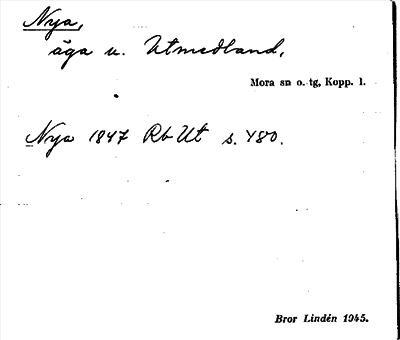 Nya,
äga u. Utmedland,
Mora sn o. tg, Kopp. l.
Nya 1847 Rb Ut s. 480.
Bror Lindén 1945.